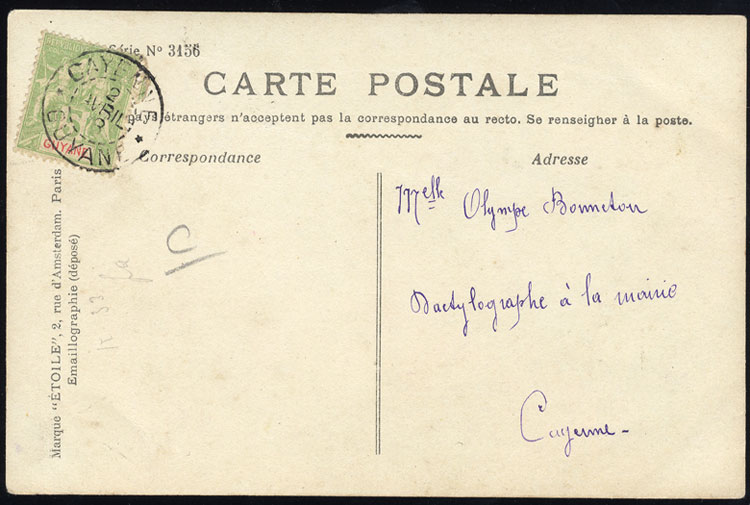 Série Nº 3156
CARTE POSTALE
pays étrangers n'acceptent pas la correspondance au recto. Se renseigner à la poste.
Correspondance
Adresse
CAYENNE
2
AVRIL
GUYANE
Melle Olympe Bonneton
Dactylographe à la mairie
Cayenne-
Marque "ÉTOILE", 2, rue d'Amsterdam. Paris
Emaillographie (déposé)